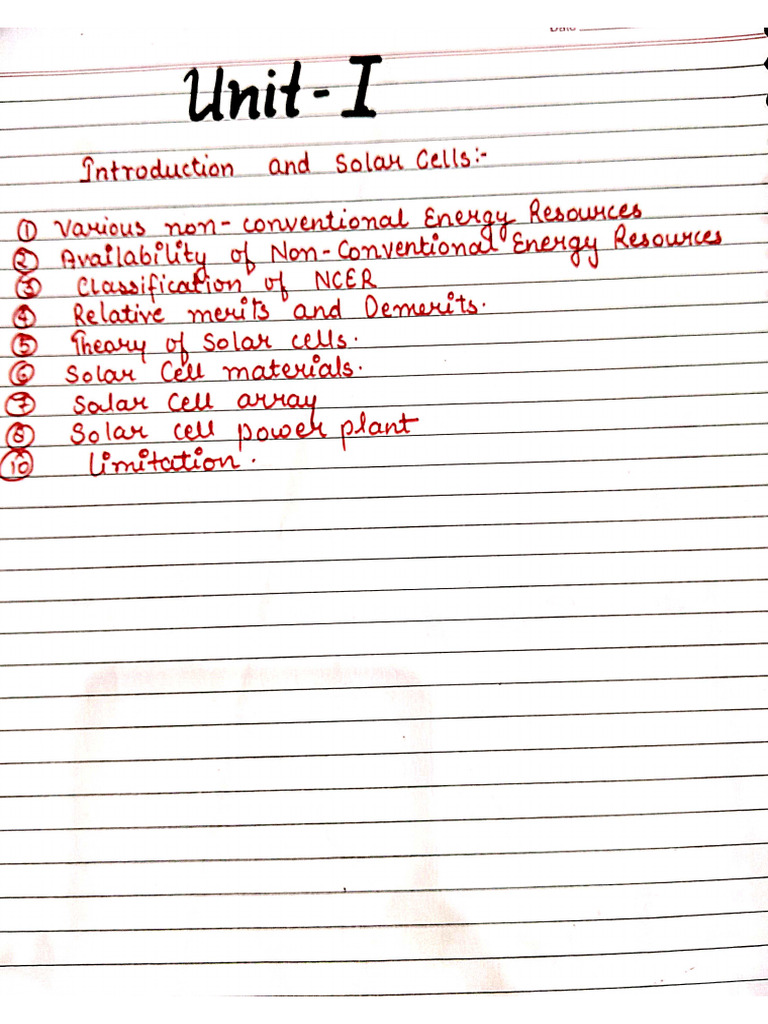 Unit-I
Introduction and Solar Cells:-
① Various non-conventional Energy Resources
② Availability of Non-Conventional Energy Resources
③ Classification of NCER
④ Relative merits and Demerits.
⑤ Theory of Solar cells.
⑥ Solar Cell materials.
⑦ Solar Cell array
⑧ Solar cell power plant
⑩ limitation.